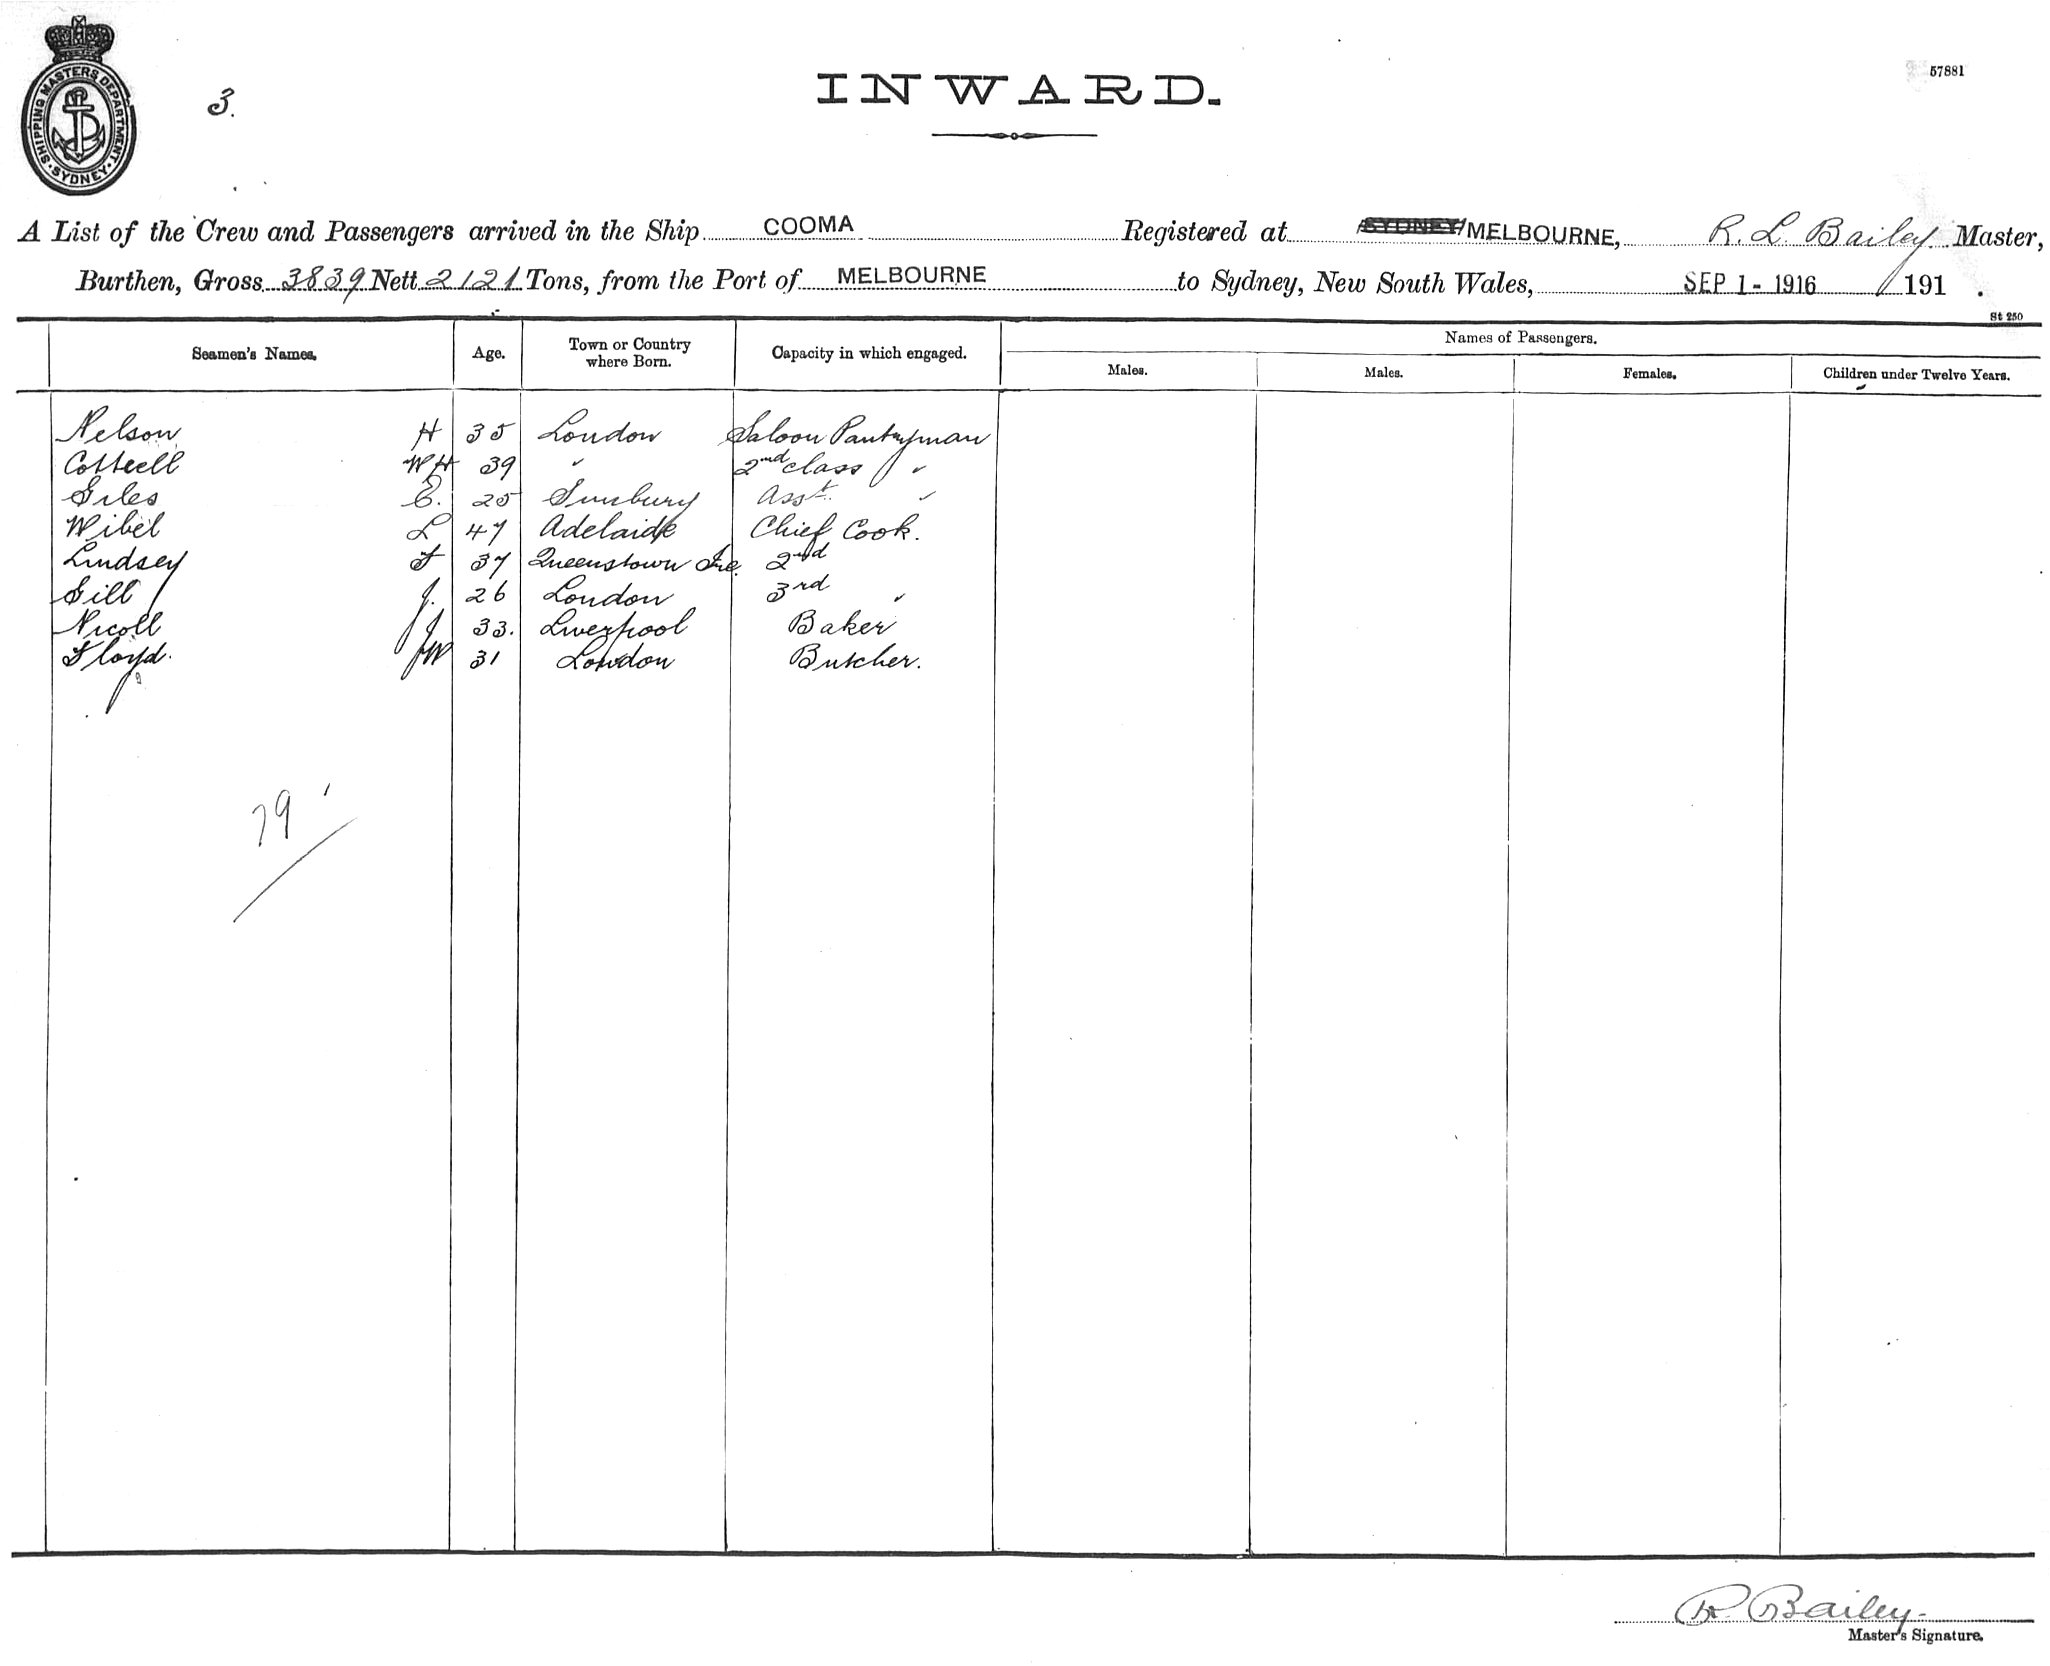 SHIPPING MASTERS DEPARTMENT · SYDNEY ·
3.
INWARD.
57881
A List of the Crew and Passengers arrived in the Ship COOMA Registered at SYDNEY MELBOURNE, R. L. Bailey Master,
Burthen, Gross 3839 Nett 2121 Tons, from the Port of MELBOURNE to Sydney, New South Wales, SEP 1 - 1916 191 .
St 250
Seamen's Names. Age. Town or Country where Born. Capacity in which engaged. Names of Passengers.
Males. Males. Females. Children under Twelve Years.
Nelson H 35 London Saloon Pantryman
Cottrell W H 39 " 2nd class "
Giles E. 25 Sunbury Asst. "
Wibel L 47 Adelaide Chief Cook.
Lindsey F 37 Queenstown Ire. 2nd
Gill J. 26 London 3rd "
Nicoll J 33. Liverpool Baker
Floyd. J W 31 London Butcher.
79
R. Bailey.
Master's Signature.